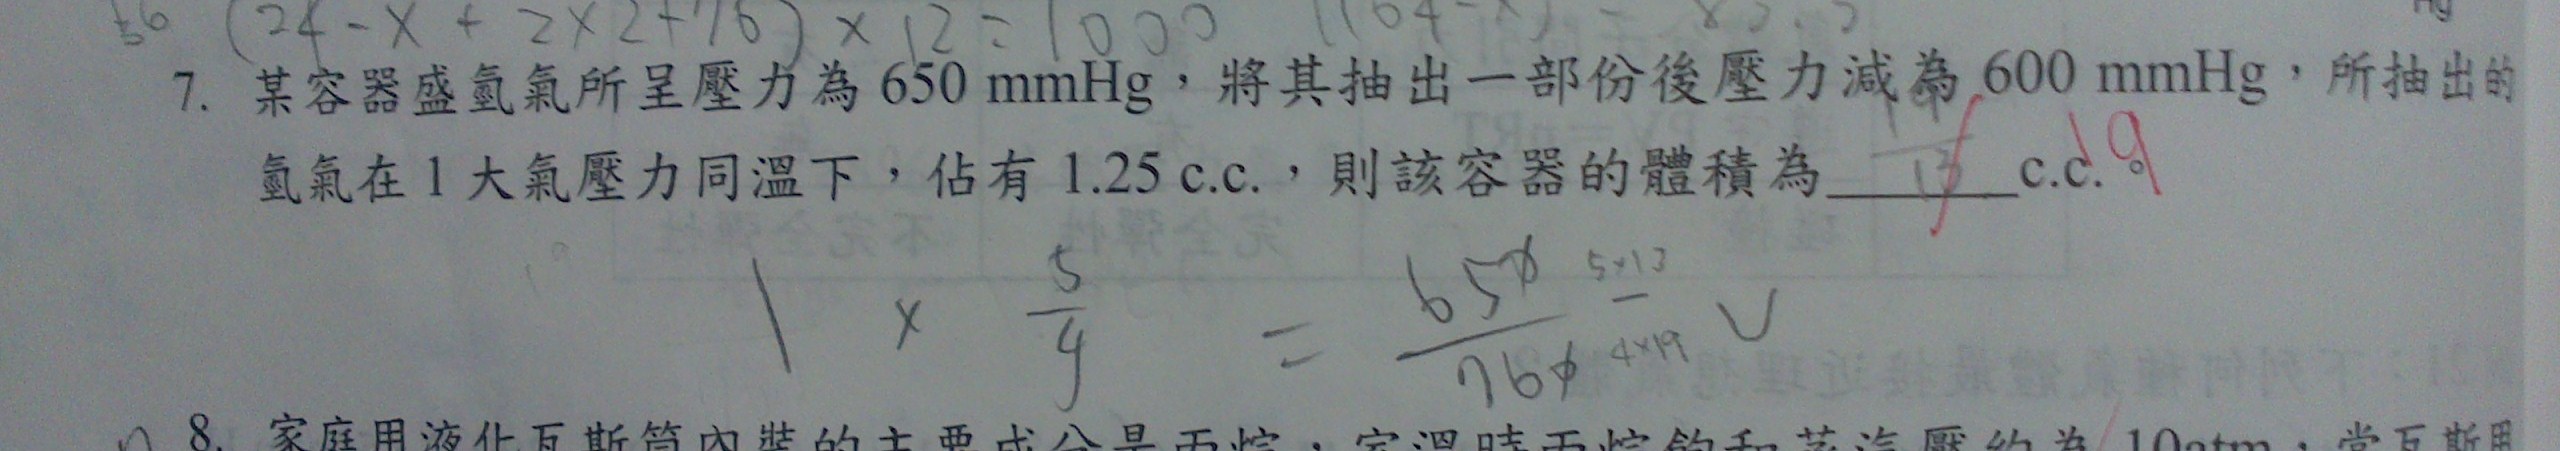 (24-x+2×2+76)×12=1000
7. 某容器盛氫氣所呈壓力為 650 mmHg,將其抽出一部份後壓力減為 600 mmHg,所抽出的
氫氣在 1 大氣壓力同溫下,佔有 1.25 c.c.,則該容器的體積為 19/13 c.c.。 19
1 × 5/4 = 650/760 5×13/4×19 V
8. 家庭用液化瓦斯筒內裝的主要成分是丙烷,室溫時丙烷飽和蒸汽壓約為 10atm,當瓦斯用